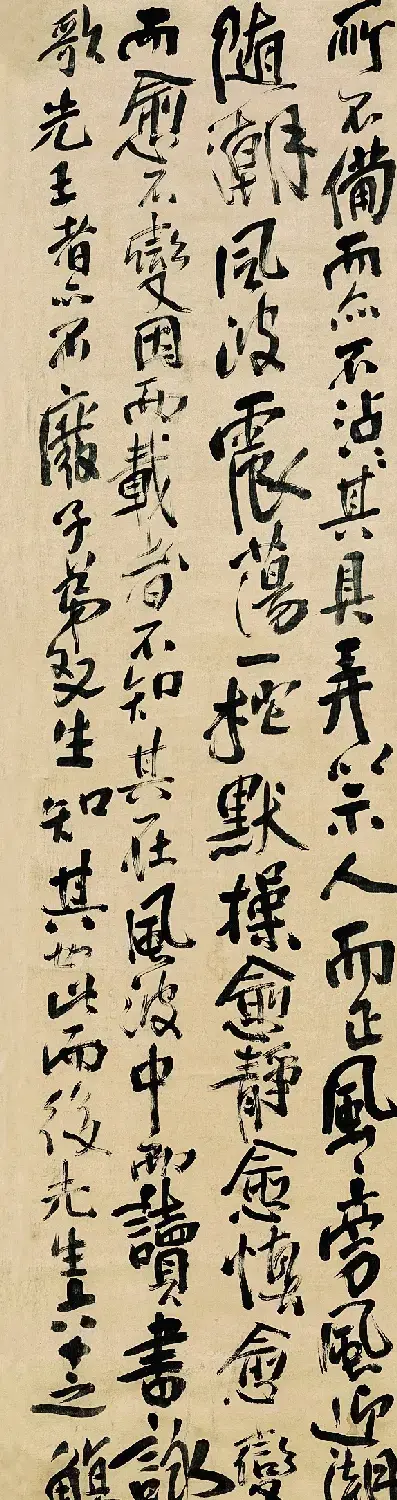 所不備而亦不沾其具弄以示人而正風旁風迎潮
随潮風波震蕩一柁默操愈靜愈慎愈變
而愈不變因而載者不知其在風波中而讀書詠
歌先王者亦不廢子弟友生知其世此而後先生六十之觴